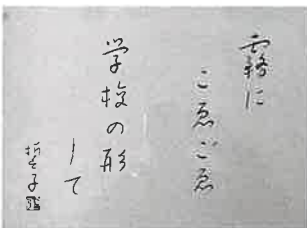 霧に
こゑごゑ
学校の形
して
哲子